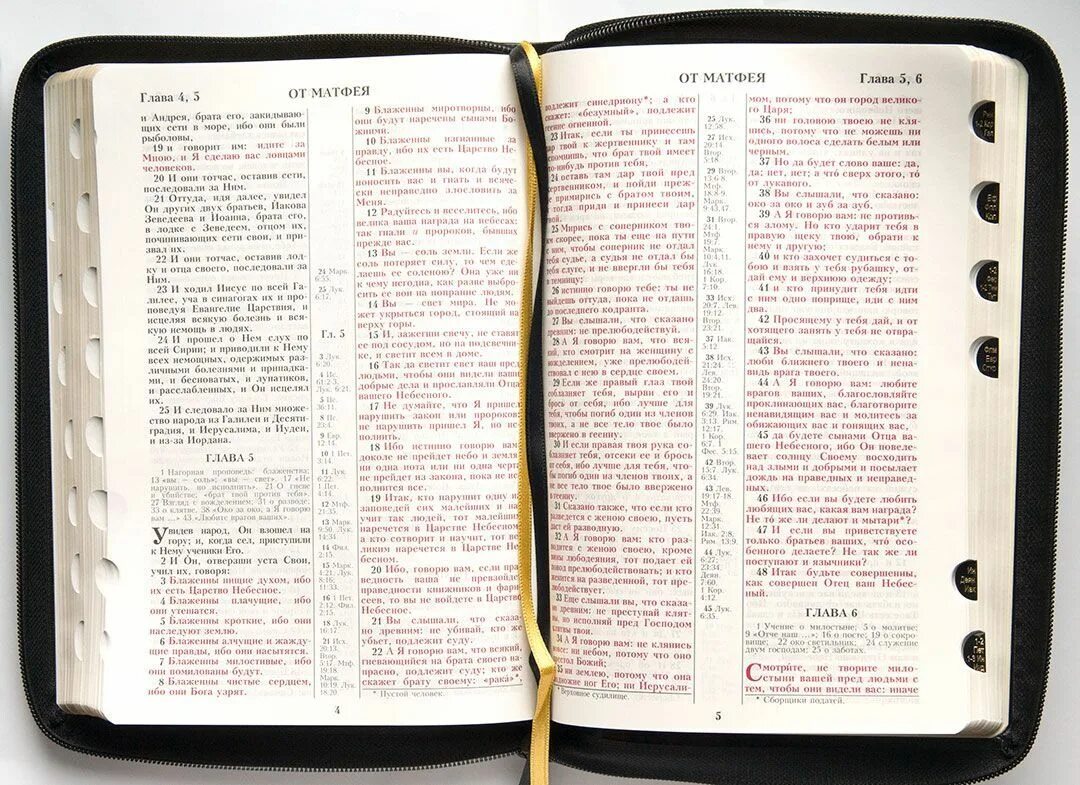 Глава 4, 5
ОТ МАТФЕЯ
и Андрея, брата его, закидываю-
щих сети в море, ибо они были
рыболовы,
19 и говорит им: идите за
Мною, и Я сделаю вас ловцами
человеков.
20 И они тотчас, оставив сети,
последовали за Ним.
21 Оттуда, идя далее, увидел
Он других двух братьев, Иакова
Зеведеева и Иоанна, брата его,
в лодке с Зеведеем, отцом их,
починивающих сети свои, и при-
звал их.
22 И они тотчас, оставив лод-
ку и отца своего, последовали за
Ним.
23 И ходил Иисус по всей Га-
лилее, уча в синагогах их и про-
поведуя Евангелие Царствия, и
исцеляя всякую болезнь и вся-
кую немощь в людях.
24 И прошел о Нем слух по
всей Сирии; и приводили к Нему
всех немощных, одержимых раз-
личными болезнями и припадка-
ми, и бесноватых, и лунатиков,
и расслабленных, и Он исцелял
их.
25 И следовало за Ним множе-
ство народа из Галилеи и Десяти-
градия, и Иерусалима, и Иудеи,
и из-за Иордана.
ГЛАВА 5
1 Нагорная проповедь: блаженства;
13 «вы — соль»; «вы — свет». 17 «Не
нарушить, но исполнить». 21 О гневе
и убийстве; «брат твой против тебя».
27 Взгляд с вожделением; 31 о разводе,
33 о клятве. 38 «Око за око, а Я говорю
вам ...» 43 «Любите врагов ваших».
Увидев народ, Он взошел на
гору; и, когда сел, приступили
к Нему ученики Его.
2 И Он, отверши уста Свои,
учил их, говоря:
3 Блаженны нищие духом, ибо
их есть Царство Небесное.
4 Блаженны плачущие, ибо
они утешатся.
5 Блаженны кроткие, ибо они
наследуют землю.
6 Блаженны алчущие и жажду-
щие правды, ибо они насытятся.
7 Блаженны милостивые, ибо
они помилованы будут.
8 Блаженны чистые сердцем,
ибо они Бога узрят.
24 Марк.
6:55.
25 Лук.
6:17.
Гл. 5
3 Лук.
6:20.
4 Ис.
61:2 3.
Лук. 6:21.
5 Пс.
36:11.
8 Пс.
23:4.
9 Евр.
12:14.
10 1 Пет.
3:14.
11 Лук.
6:22.
1 Пет.
4:14.
12 Мтф.
21:35.
13 Марк.
9:50.
Лук.
14:34.
14 Фил.
2:15.
15 Марк.
4:21.
Лук.
8:16;
11:33.
16 1 Пет.
2:12.
Фил.
2:15.
18 Лук.
16:17.
21 Исх.
20:13.
Втор.
5:17.
Мтф.
19:18.
Марк.
10:19. Лук.
18:20
9 Блаженны миротворцы, ибо
они будут наречены сынами Бо-
жиими.
10 Блаженны изгнанные за
правду, ибо их есть Царство Не-
бесное.
11 Блаженны вы, когда будут
поносить вас и гнать и вся́че-
ски неправедно злословить за
Меня.
12 Радуйтесь и веселитесь, ибо
велика ваша награда на небесах:
так гнали и пророков, бывших
прежде вас.
13 Вы — соль земли. Если же
соль потеряет силу, то чем сде-
лаешь ее соленою? Она уже ни
к чему негодна, как разве выбро-
сить ее вон на попрание людям.
14 Вы — свет мира. Не мо-
жет укрыться город, стоящий на
верху горы.
15 И, зажегши свечу, не ставят
ее под сосудом, но на подсвечни-
ке, и светит всем в доме.
16 Так да светит свет ваш пред
людьми, чтобы они видели ваши
добрые дела и прославляли Отца
вашего Небесного.
17 Не думайте, что Я пришел
нарушить закон или пророков:
не нарушить пришел Я, но ис-
полнить.
18 Ибо истинно говорю вам:
доколе не прейдет небо и земля,
ни одна иота или ни одна черта
не прейдет из закона, пока не ис-
полнится все.
19 Итак, кто нарушит одну из
заповедей сих малейших и на-
учит так людей, тот малейшим
наречется в Царстве Небесном;
а кто сотворит и научит, тот ве-
ликим наречется в Царстве Не-
бесном.
20 Ибо, говорю вам, если пра-
ведность ваша не превзойдет
праведности книжников и фари-
сеев, то вы не войдете в Царство
Небесное.
21 Вы слышали, что сказа-
но древним: не убивай, кто же
убьет, подлежит суду.
22 А Я говорю вам, что всякий,
гневающийся на брата своего на-
прасно, подлежит суду; кто же
скажет брату своему: «рака́*»,
* Пустой человек.
4
ОТ МАТФЕЯ
Глава 5, 6
подлежит синедриону*; а кто
скажет: «безумный», подлежит
геенне огненной.
23 Итак, если ты принесешь
дар твой к жертвеннику и там
вспомнишь, что брат твой имеет
что-нибудь против тебя,
24 оставь там дар твой пред
жертвенником, и пойди преж-
де примирись с братом твоим,
тогда приди и принеси дар
твой.
25 Мирись с соперником тво-
им скорее, пока ты еще на пути
с ним, чтобы соперник не отдал
тебя судье, а судья не отдал бы
тебя слуге, и не ввергли бы тебя
в темницу;
26 истинно говорю тебе: ты не
выйдешь оттуда, пока не отдашь
до последнего кодранта.
27 Вы слышали, что сказано
древним: не прелюбодействуй.
28 А Я говорю вам, что вся-
кий, кто смотрит на женщину с
вожделением, уже прелюбодей-
ствовал с нею в сердце своем.
29 Если же правый глаз твой
соблазняет тебя, вырви его и
брось от себя, ибо лучше для
тебя, чтобы погиб один из членов
твоих, а не все тело твое было
ввержено в геенну.
30 И если правая твоя рука со-
блазняет тебя, отсеки ее и брось
от себя, ибо лучше для тебя, что-
бы погиб один из членов твоих, а
не все тело твое было ввержено
в геенну.
31 Сказано также, что если кто
разведется с женою своею, пусть
даст ей разводную.
32 А Я говорю вам: кто раз-
водится с женою своею, кроме
вины любодеяния, тот подает ей
повод прелюбодействовать; и кто
женится на разведенной, тот пре-
любодействует.
33 Еще слышали вы, что сказа-
но древним: не преступай клят-
вы, но исполняй пред Господом
клятвы твои.
34 А Я говорю вам: не клянись
вовсе: ни небом, потому что оно
престол Божий;
35 ни землею, потому что она
подножие ног Его; ни Иерусали-
* Верховное судилище.
25 Лук.
12:58.
27 Исх.
20:14
Втор.
5:18.
29 Втор.
13:6-8.
Мтф.
18:8-9.
Марк.
9:43,47.
31 Втор.
24:1.
Мтф.
19:7.
Марк.
10:4,11.
Лук.
16:18.
1 Кор.
7:10.
33 Исх
20:7. Лев.
19:12.
Втор.
23:21.
37 Иак.
5:12.
38 Исх.
21:24.
Лев.
24:20.
Втор.
19:21.
39 Лук.
6:29. Иак.
3:13. Рим.
12:17.
1 Кор.
6:7. 1
Фес. 5:15.
42 Втор.
15:7. Лук.
6:34.
43 Лев.
19:17-18.
Мтф.
22:39.
Марк.
12:31.
Иак. 2:8.
Рим. 13:9.
44 Лук.
6:27;
23:34.
Деян.
7:60.
1 Кор.
4:12
45 Лук.
6:35.
мом, потому что он город велико-
го Царя;
36 ни головою твоею не кля-
нись, потому что не можешь ни
одного волоса сделать белым или
черным.
37 Но да будет слово ваше: да,
да; нет, нет; а что́ сверх этого, то́
от лукавого.
38 Вы слышали, что сказано:
око за око и зуб за зуб.
39 А Я говорю вам: не противь-
ся злому. Но кто ударит тебя в
правую щеку твою, обрати к
нему и другую;
40 и кто захочет судиться с то-
бою и взять у тебя рубашку, от-
дай ему и верхнюю одежду;
41 и кто принудит тебя идти
с ним одно поприще, иди с ним
два.
42 Просящему у тебя дай, и от
хотящего занять у тебя не отвра-
щайся.
43 Вы слышали, что сказано:
люби ближнего твоего и нена-
видь врага твоего.
44 А Я говорю вам: любите
врагов ваших, благословляйте
проклинающих вас, благотворите
ненавидящим вас и молитесь за
обижающих вас и гонящих вас,
45 да будете сынами Отца ва-
шего Небесного, ибо Он повеле-
вает солнцу Своему восходить
над злыми и добрыми и посылает
дождь на праведных и неправед-
ных.
46 Ибо если вы будете любить
любящих вас, какая вам награда?
Не то́ же ли делают и мытари*?
47 И если вы приветствуете
только братьев ваших, что осо-
бенного делаете? Не так же ли
поступают и язычники?
48 Итак будьте совершенны,
как совершен Отец ваш Небес-
ный.
ГЛАВА 6
1 Учение о милостыне; 5 о молитве;
9 «Отче наш ...»; 16 о посте; 19 о сокро-
вище; 22 око-светильник, 24 служение
двум господам; 25 о заботах.
Смотри́те, не творите мило-
стыни вашей пред людьми с
тем, чтобы они видели вас: иначе
* Сборщики податей.
5